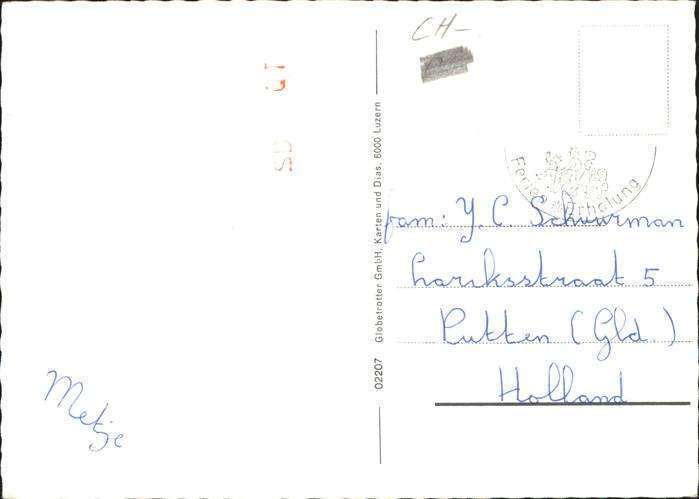 CH-
Ferien Erholung
fam: Y. C. Schuurman
Lariksstraat 5
Putten (Gld.)
Holland
Metje
02207 Globetrotter GmbH, Karten und Dias, 6000 Luzern